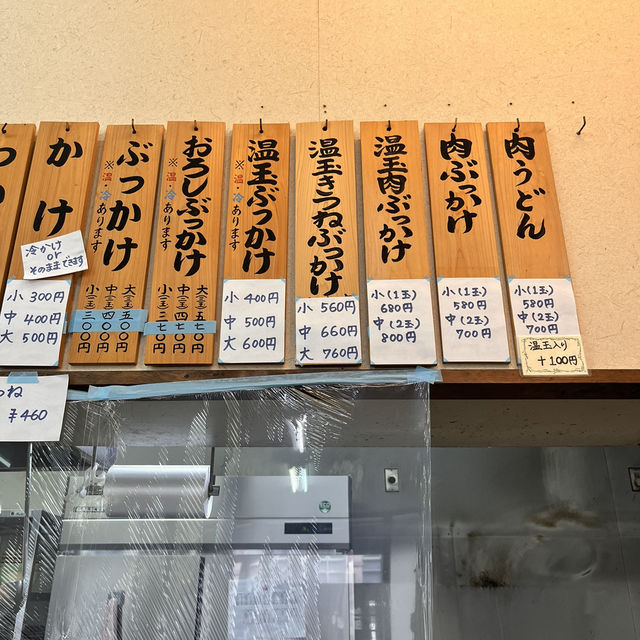 肉うどん
小(1玉)
580円
中(2玉)
700円
温玉入り
+100円
肉ぶっかけ
小(1玉)
580円
中(2玉)
700円
温玉肉ぶっかけ
小(1玉)
680円
中(2玉)
800円
温玉きつねぶっかけ
小 560円
中 660円
大 760円
温玉ぶっかけ
※温・冷あります
小 400円
中 500円
大 600円
おろしぶっかけ
※温・冷あります
大(三玉)五七〇円
中(二玉)四七〇円
小(一玉)三七〇円
ぶっかけ
※温・冷あります
大(三玉)五〇〇円
中(二玉)四〇〇円
小(一玉)三〇〇円
かけ
冷かけ
or
そのままできます
小 300円
中 400円
大 500円
つね
¥460